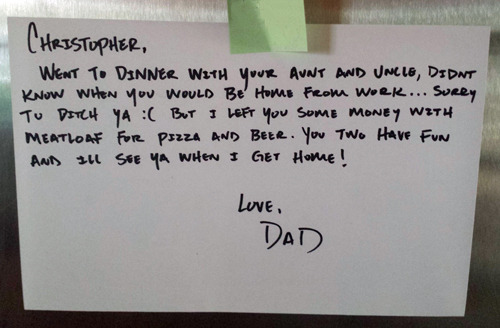 CHRISTOPHER,
WENT TO DINNER WITH YOUR AUNT AND UNCLE, DIDNT
KNOW WHEN YOU WOULD BE HOME FROM WORK... SORRY
TO DITCH YA :( BUT I LEFT YOU SOME MONEY WITH
MEATLOAF FOR PIZZA AND BEER. YOU TWO HAVE FUN
AND ILL SEE YA WHEN I GET HOME!
LOVE,
DAD